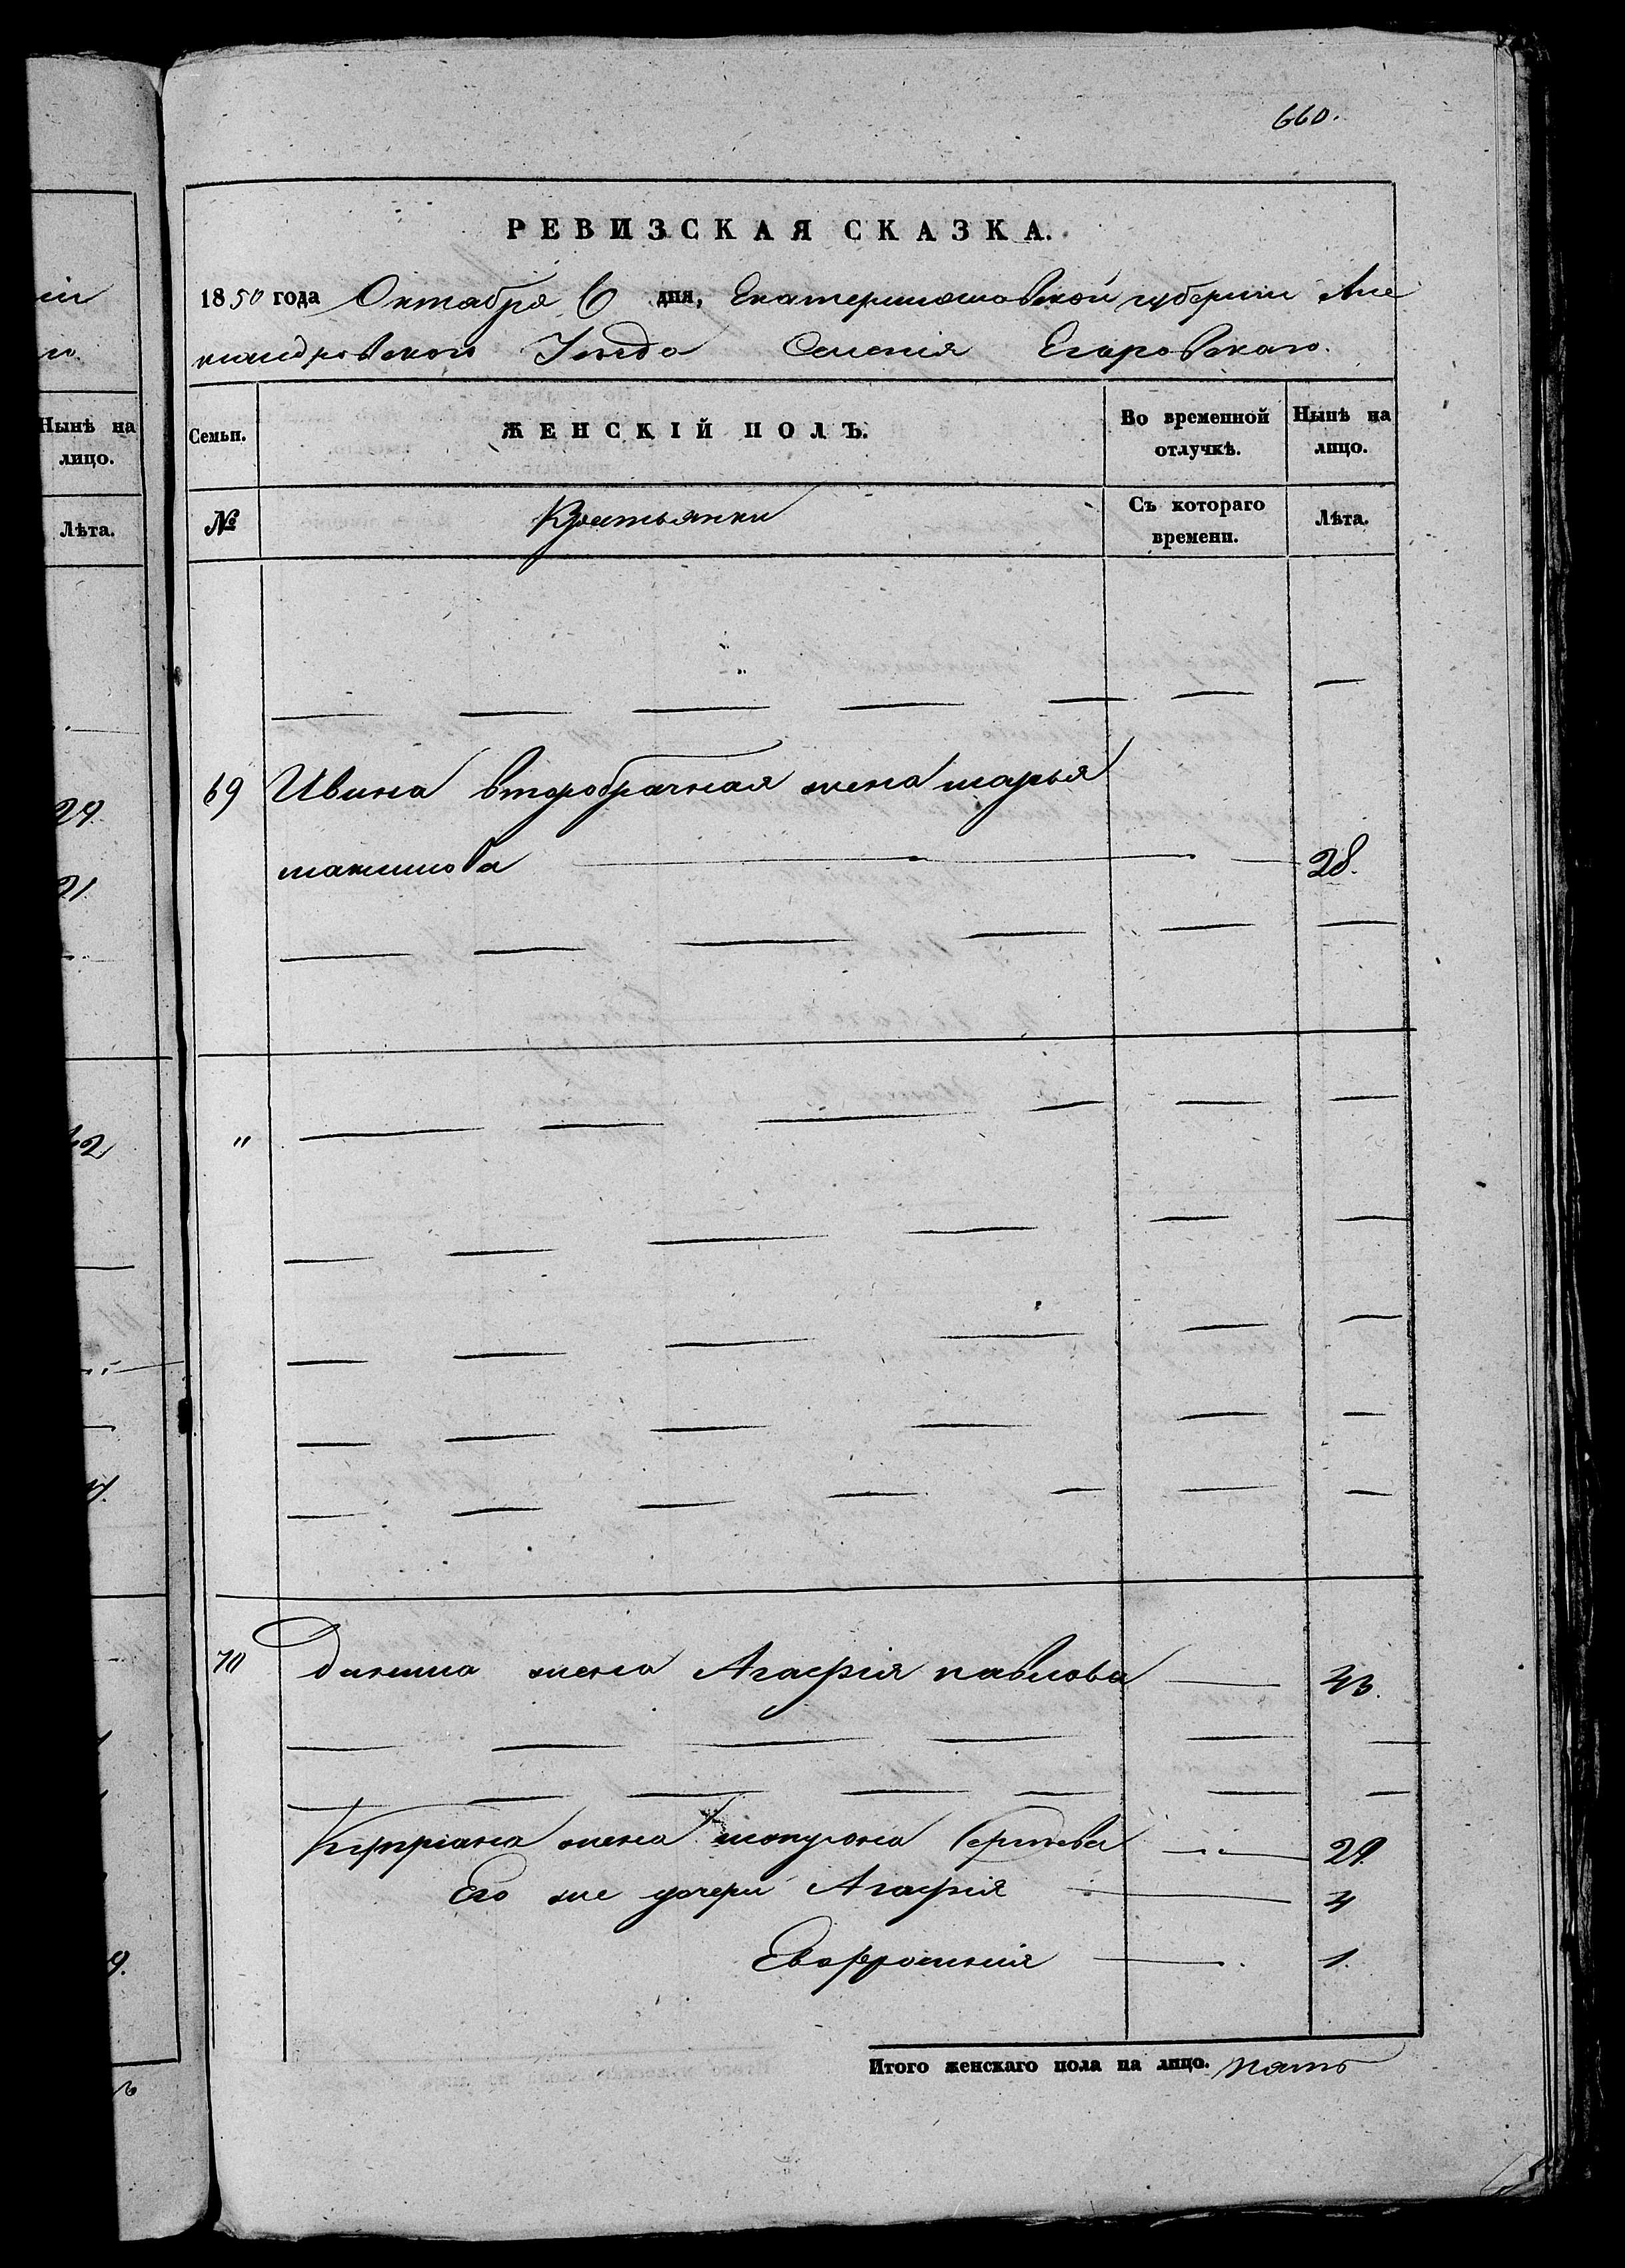 660.
РЕВИЗСКАЯ СКАЗКА.
1850 года Октября 6 дня, Екатеринославской губернии Але
ксандровского Уезда Селенія Егоровскаго.
Семьи. ЖЕНСКІЙ ПОЛЪ. Во временной отлучкѣ. Нынѣ на лицо.
№ Крестьянки Съ котораго времени. Лѣта.
69 Ивина второбрачная жена марья
максимова 28.
"
70 Данила жена Агафія павлова 43.
Кипріана жена Сергѣева 29.
Его же дочери Агафія 4
Евфросинія 1.
Итого женскаго пола на лицо. пять
Нынѣ на
лицо.
Лѣта.
24.
21.
42
9.